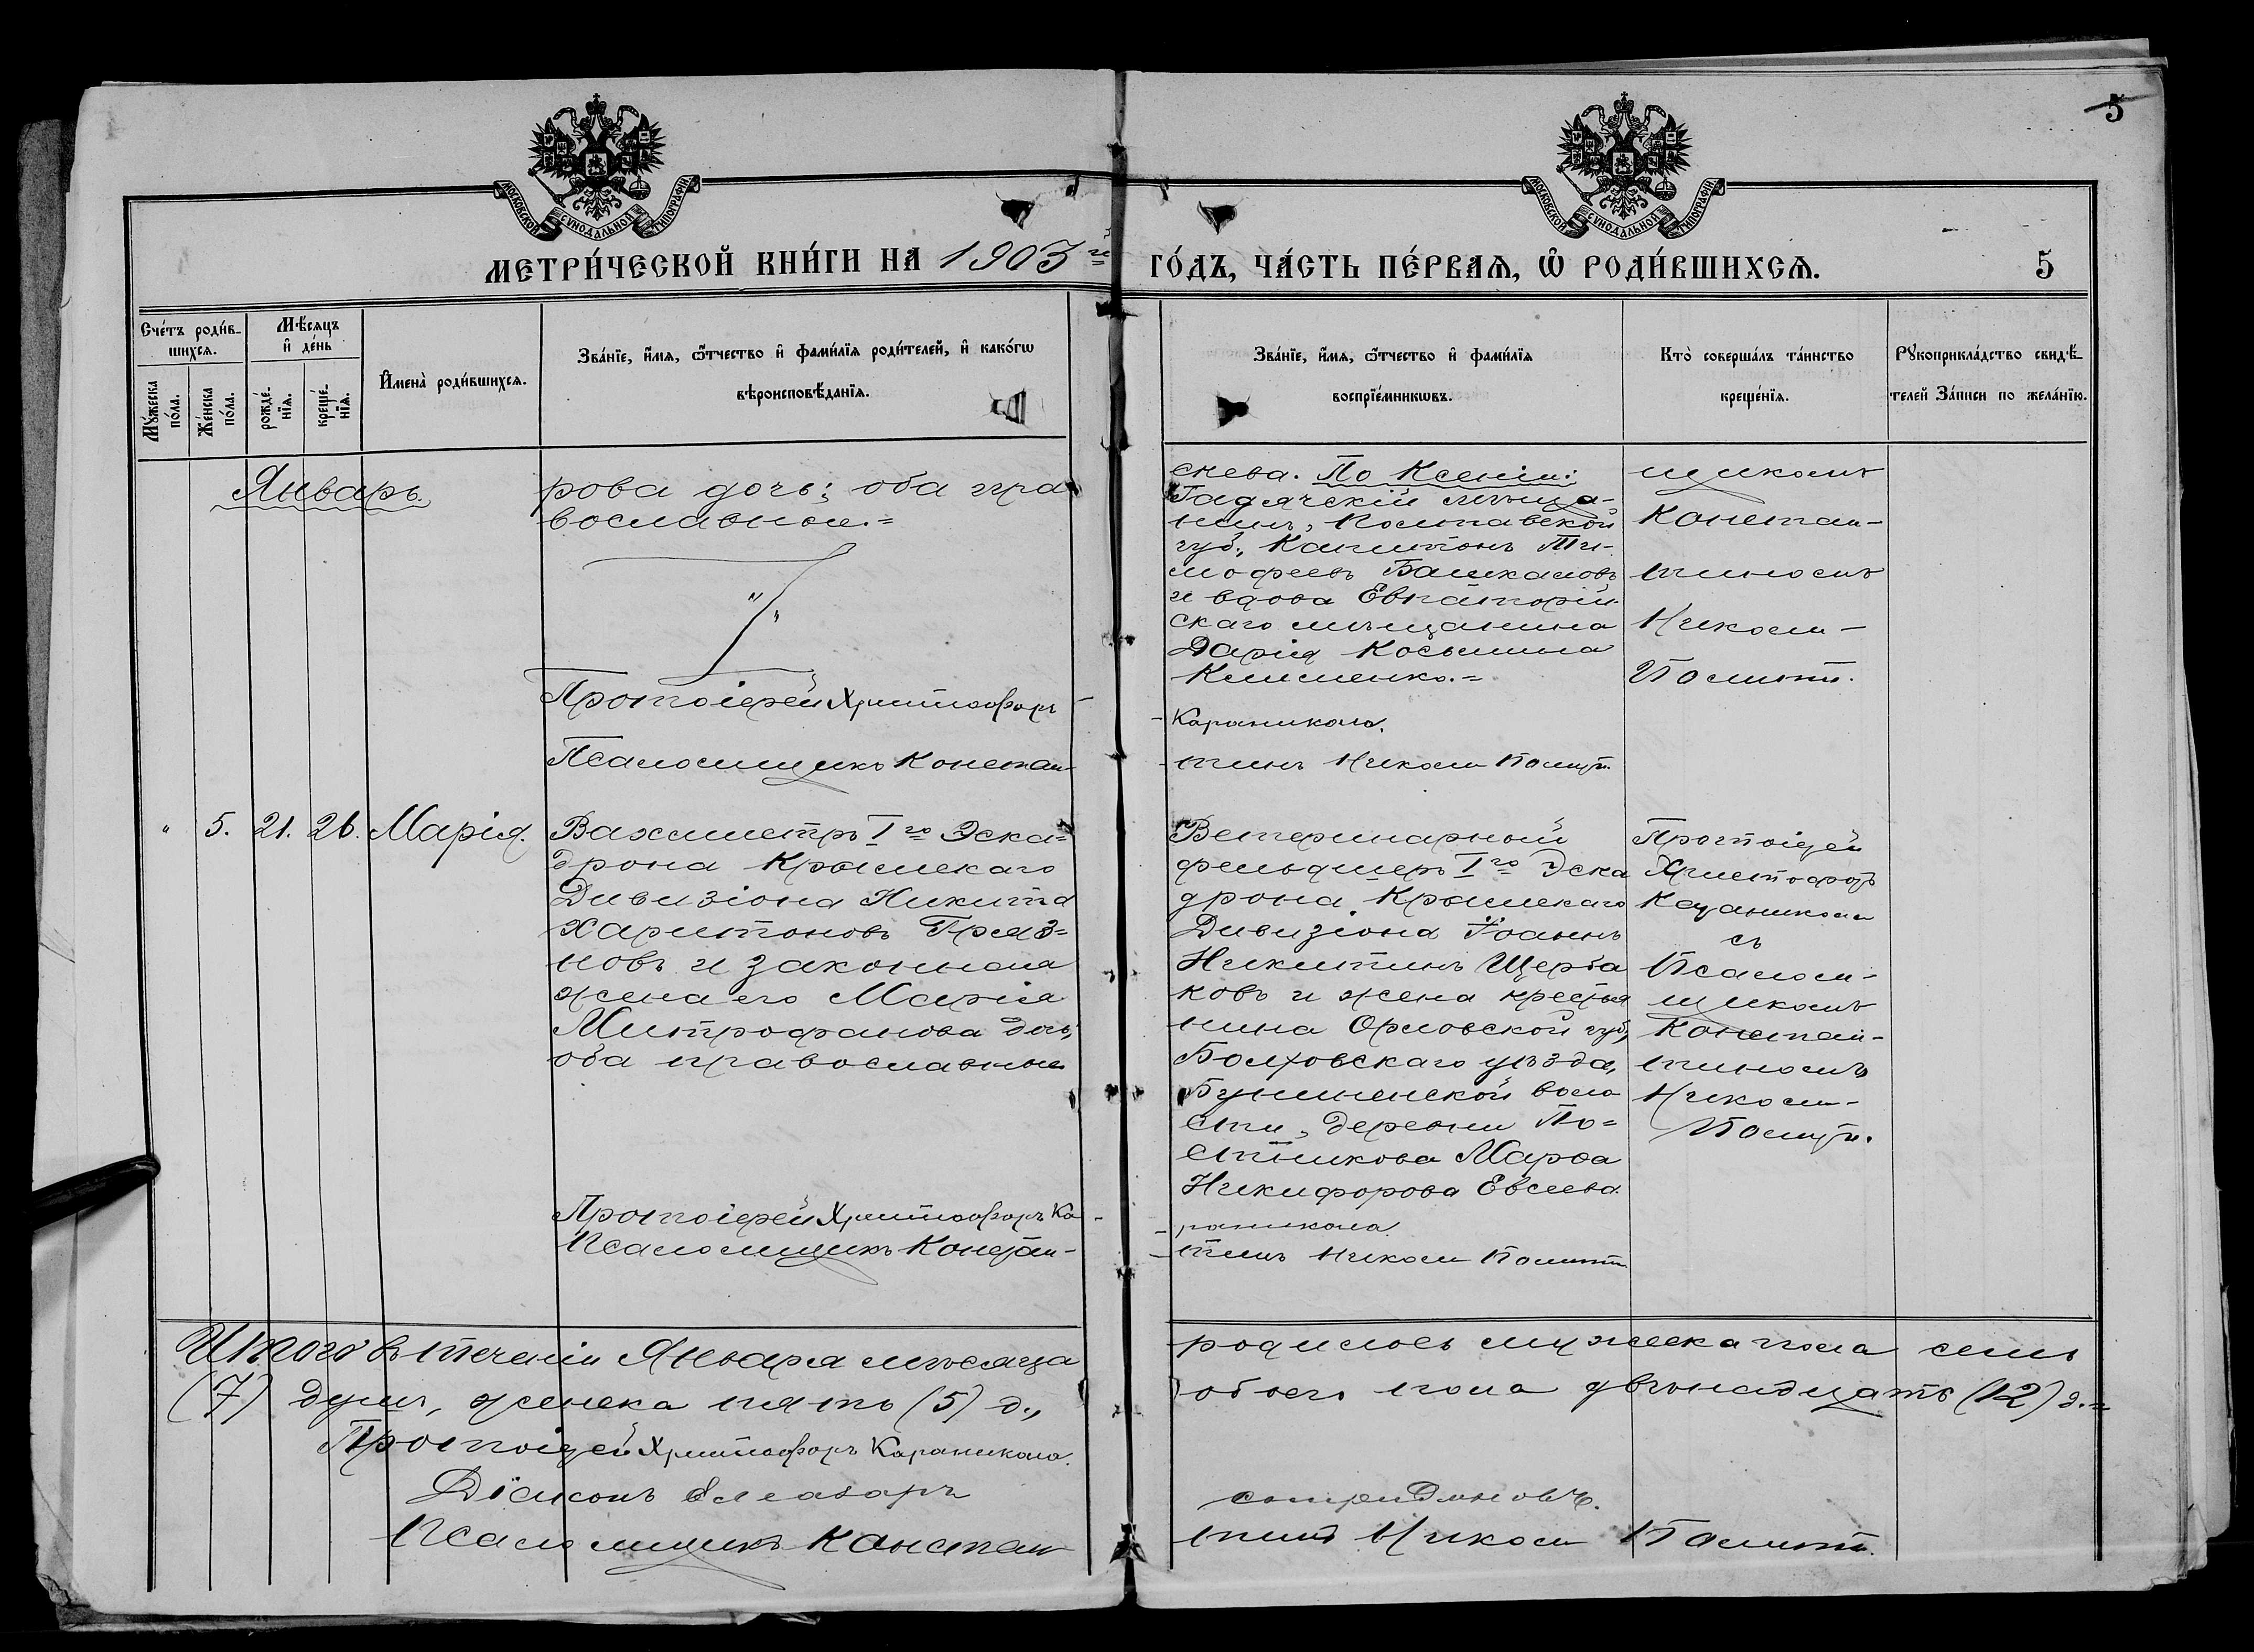 5
МОСКОВСКОЙ СУНОДАЛЬНОЙ ТИПОГРАФІИ.
МОСКОВСКОЙ СУНОДАЛЬНОЙ ТИПОГРАФІИ.
МЕТРИ́ЧЕСКОЙ КНИ́ГИ НА 1903й
ГО́ДЪ, ЧА́СТЬ ПЕ́РВАѦ, Ѽ РОДИ́ВШИХСѦ.
5
Сче́тъ роди́в-
шихсѧ.
Мꙋ́жеска по́ла.
Же́нска по́ла.
Мѣ́сяцъ
и҆ де́нь
рожде́-
нїѧ.
креще́-
нїѧ.
И҆мена̀ роди́вшихсѧ.
Зва́нїе, и҆́мѧ, ѻ҆́тчество и҆ фами́лїѧ роди́телей, и҆ како́гѡ
вѣроисповѣ́данїѧ.
Зва́нїе, и҆́мѧ, ѻ҆́тчество и҆ фами́лїѧ
воспрїе́мникѡвъ.
Кто̀ соверша́лъ та́инство
креще́нїѧ.
Рꙋкоприкла́дство свидѣ́-
телей За́писи по жела́нїю.
Январь.
рова дочь; оба пра
вославные.=
Протоіерей Христофоръ
Псаломщикъ Констан-
По Ксеніи:
Гадячскій мѣща-
нинъ, Полтавской
губ., Капитонъ Ти-
мофеевъ
и вдова Евпаторій-
скаго мѣщанина
Дарія Косьмина
Клименко.=
Караникола.
тинъ Николи Полит.
щикомъ
Констан-
тиномъ
Николи-
Полит.
" 5. 21. 26. Марія.
Вахмистръ Iго Эска=
дрона Крымскаго
Дивизіона Никита
Харитоновъ Гряз=
новъ и законная
жена его Марія
Митрофанова дочь;
оба православные
Протоіерей Христофоръ Ка-
Псаломщикъ Констан-
Ветеринарный
фельдшеръ Iго Эска
дрона Крымскаго
Дивизіона Іоаннъ
Никитинъ Щерба
ковъ и жена крестья
нина Орловской губ.,
Болховскаго уѣзда,
воло
сти, деревни По=
стникова Марѳа
Никифорова Евсеева.
раникола.
тинъ Николи Полит
Протоіерей
Христофоръ
Караникола
съ
Псалом-
щикомъ
Констан-
тиномъ
Николи-
Полит.
Итого въ теченіи Января мѣсяца
родилось мужеска пола семь
(7) душъ, женска пять (5) д.,
обоего пола двѣнадцать (12) д.=
Протоіерей Христофоръ Караникола.
Діаконъ Елеазаръ
Спиридоновъ.
Псаломщикъ Констан
тинъ Николи Полит.